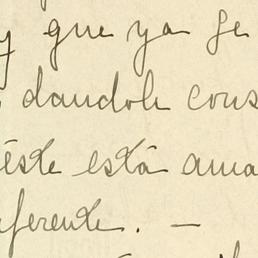 y que ya se
dandole cons
éste está ama
ferente. —